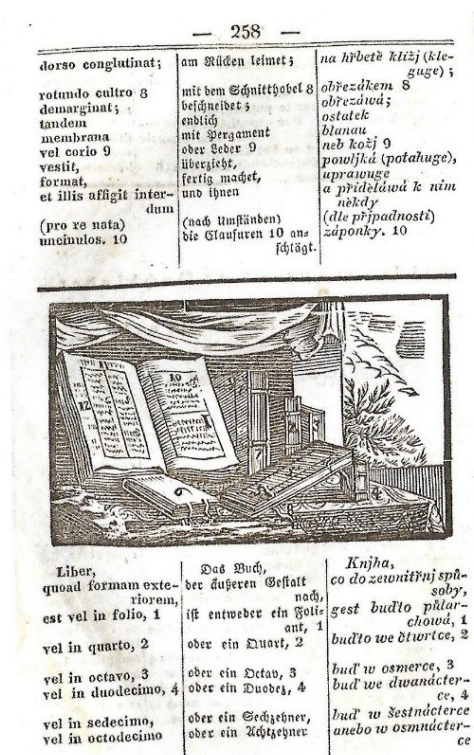 — 258 —
dorso conglutinat;
rotundo cultro 8
demarginat;
tandem
membrana
vel corio 9
vestit,
format,
et illis affigit inter-
dum
(pro re nata)
uncinulos. 10
am Rücken leimet;
mit dem Schnitthobel 8
beschneidet;
endlich
mit Pergament
oder Leder 9
überzieht,
fertig machet,
und ihnen
(nach Umständen)
die Clausuren 10 an-
schlägt.
na hřbetě klížj (kle-
guge);
obřezákem 8
obřezáwá;
ostatek
blanau
neb kožj 9
powljká (potahuge),
uprawuge
a přiděláwá k nim
někdy
(dle přjpadnosti)
záponky. 10
10
12
Liber,
quoad formam exte-
riorem,
est vel in folio, 1
vel in quarto, 2
vel in octavo, 3
vel in duodecimo, 4
vel in sedecimo,
vel in octodecimo
Das Buch,
der äußeren Gestalt
nach,
ist entweder ein Foli-
ant, 1
oder ein Quart, 2
oder ein Octav, 3
oder ein Duodez, 4
oder ein Sechzehner,
oder ein Achtzehner
Knjha,
co do zewnitřnj spů-
soby,
gest buďto půlar-
chowá, 1
buďto we čtwrtce, 2
buď w osmerce, 3
buď we dwanácter-
ce, 4
buď w šestnácterce
anebo w osmnácter-
ce